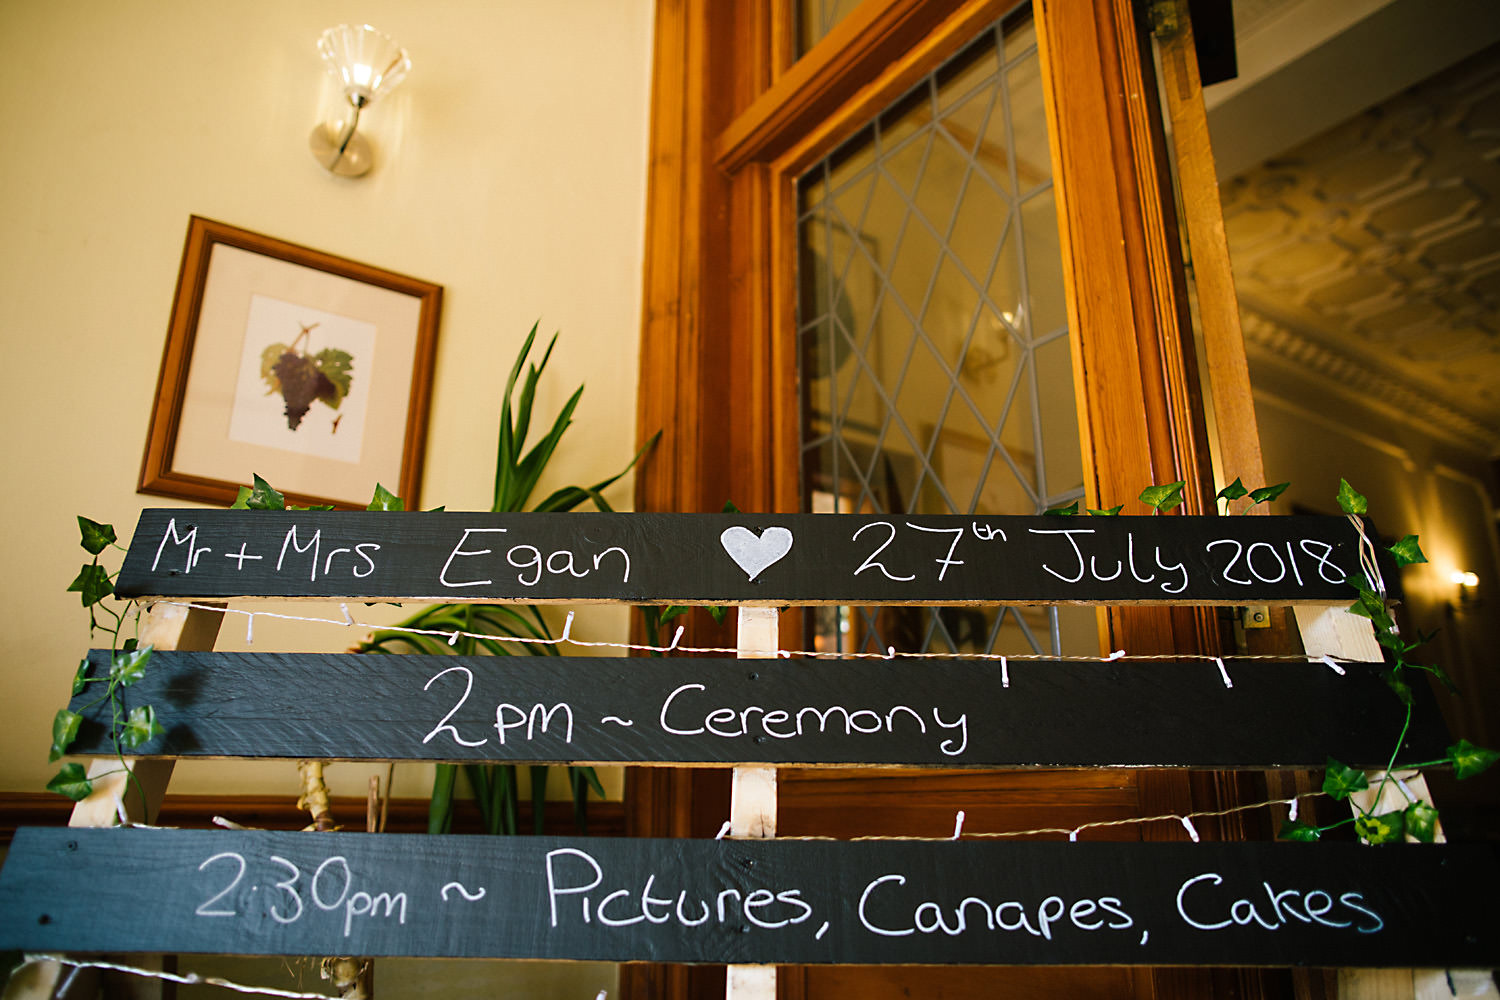 Mr + Mrs Egan 27th July 2018
2pm ~ Ceremony
2.30pm ~ Pictures, Canapes, Cakes